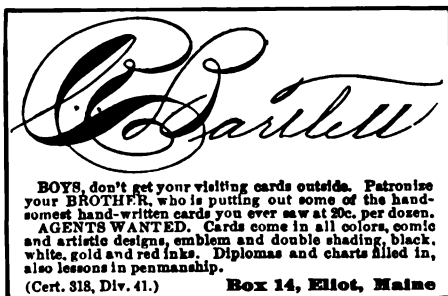 Bartlett
BOYS, don't get your visiting cards outside. Patronize
your BROTHER, who is putting out some of the hand-
somest hand-written cards you ever saw at 20c. per dozen.
AGENTS WANTED. Cards come in all colors, comic
and artistic designs, emblem and double shading, black,
white, gold and red inks. Diplomas and charts filled in,
also lessons in penmanship.
(Cert. 318, Div. 41.) Box 14, Eliot, Maine